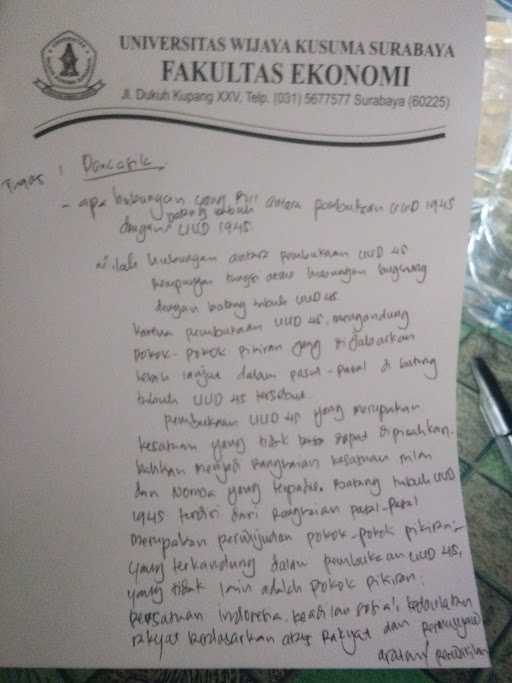 UNIVERSITAS WIJAYA KUSUMA SURABAYA
FAKULTAS EKONOMI
Jl. Dukuh Kupang XXV, Telp. (031) 5677577 Surabaya (60225)
Tugas :
- apa hubungan yang antara pembukaan UUD 1945
batang tubuh
dengan UUD 1945.
hubungan antara pembukaan UUD 45
hubungan langsung
dengan batang tubuh UUD 45
karena pembukaan UUD 45, mengandung
pokok-pokok pikiran yang dijabarkan
lebih lanjut dalam pasal-pasal di batang
tubuh UUD 45 tersebut.
pembukaan UUD 45 yang merupakan
kesatuan yang tidak dapat dipisahkan.
bahkan menjadi rangkaian kesatuan nilai
dan Norma yang terpadu. Batang tubuh UUD
1945 terdiri dari Rangkaian pasal-pasal
merupakan perwujudan pokok-pokok pikiran
yang terkandung dalam pembukaan UUD 45,
yang tidak lain adalah pokok pikiran:
persatuan indonesia, keadilan sosial, kedaulatan
rakyat berdasarkan atas Rakyat dan